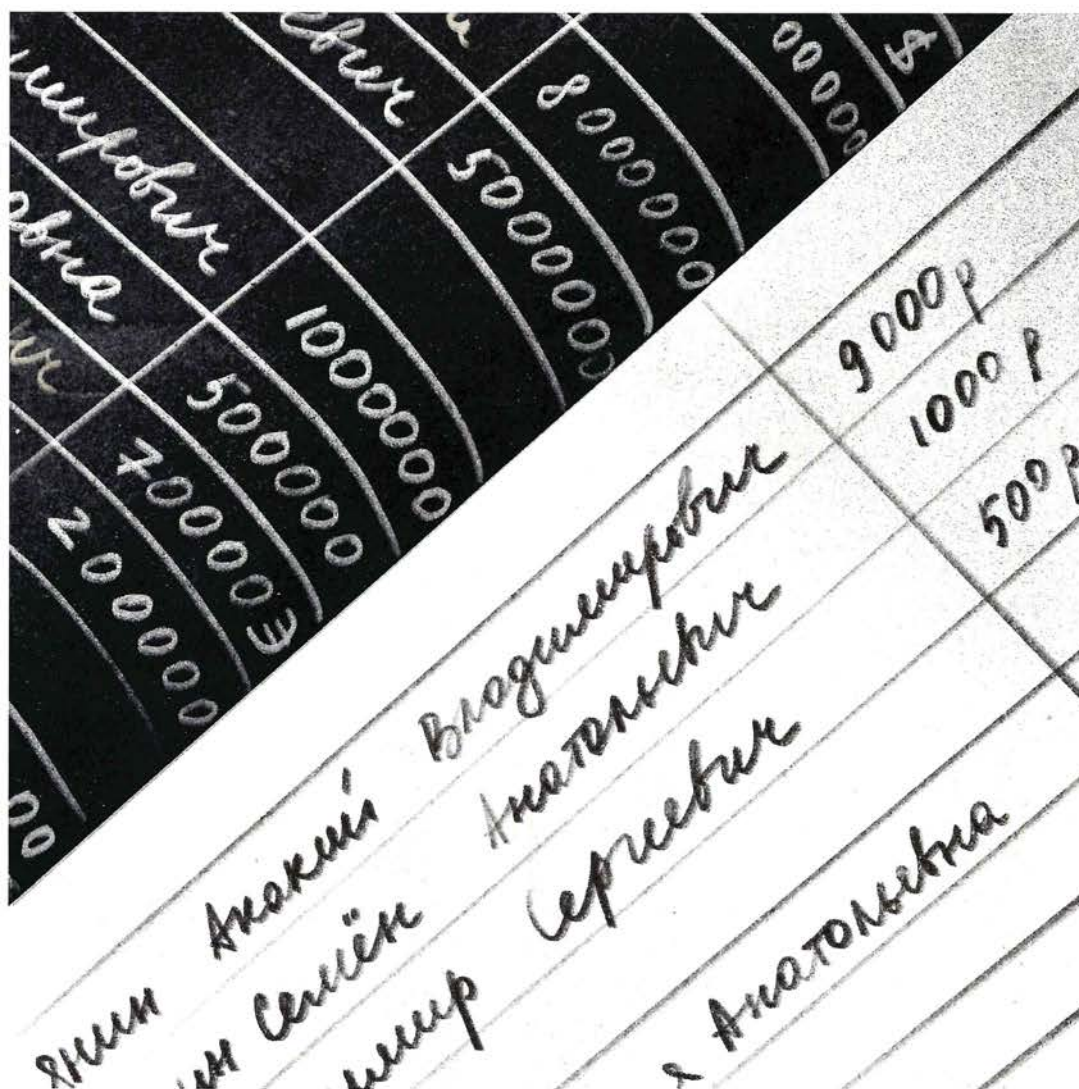 000000 $
8000000
евич 5000000
мирович 1000000
овна 500000
ич 70000 €
200000
00
янин Акакий Владимирович 9000 р
ин Семён Анатольевич 1000 р
имир Сергеевич 500 р
Анатольевна